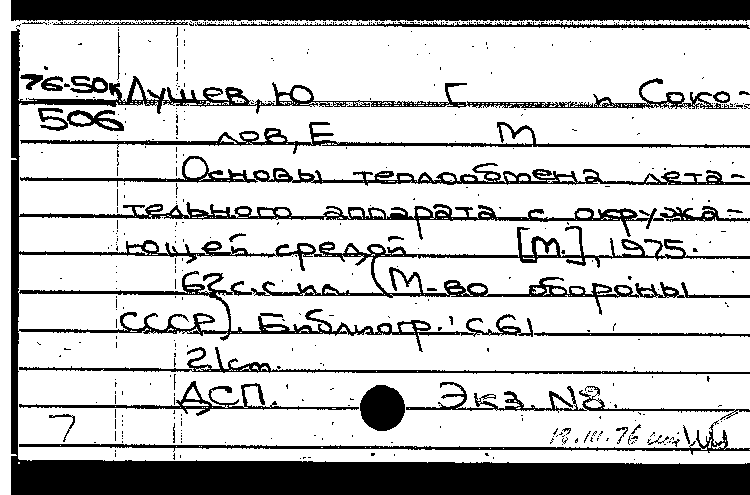 76-50к Лушев, Ю Г и Соко-
506
лов, Е М
Основы теплообмена лета-
тельного аппарата с окружа-
ющей средой [М.], 1975.
62 с. с ил. (М-во обороны
СССР). Библиогр.: с. 61
21 см.
ДСП. Экз. N8.
7
18.III.76